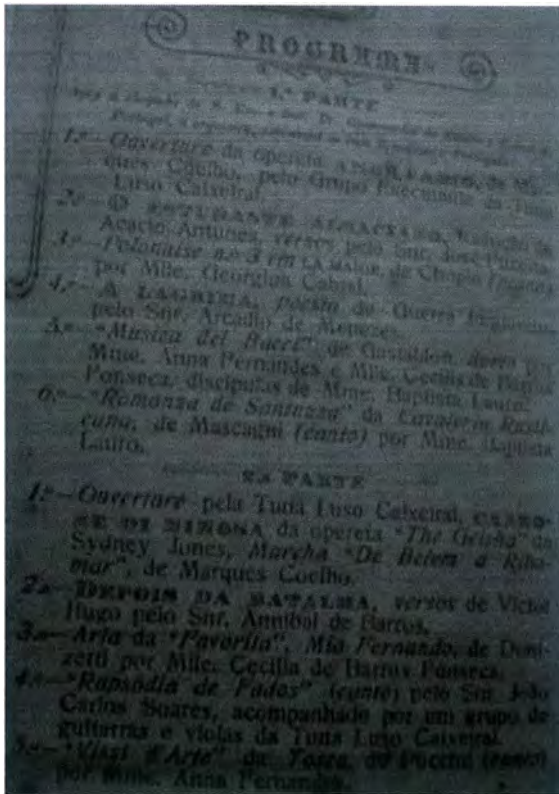 PROGRAMA
1.ª PARTE
1.º—Ouverture da opereta da Mar-
ques Coelho, pelo Grupo da Tuna
Luso Caixeiral.
2.º—O ESTUDANTE ALSACIANO,
Acacio Antunes, versos pelo Snr. José
3.º—Polonaise n.º 3 em LA MAIOR, de Chopin (piano)
por Mlle. Georgina Cabral.
4.º—A LAGRIMA, poesia de Guerra Junqueiro
pelo Snr. Arcadio de Menezes.
5.º—"Musica del Bacci", de Gastaldon, por
Mme. Anna Fernandes e Mlle. Cecilia de Barros
Fonseca, discipulas de Mme. Baptista Lauro.
6.º—"Romanza de Santuzza" da Cavaleria Rusti-
cana, de Mascagni (canto) por Mme. Baptista
Lauro.
2.ª PARTE
1.º—Ouverture pela Tuna Luso Caixeiral,
SE DI MIMOSA da opereta "The Geisha" de
Sydney Jones, Marcha "De Belem a Riba-
mar", de Marques Coelho.
2.º—DEPOIS DA BATALHA, versos de Victor
Hugo pelo Snr. Annibal de Barros.
3.º—Aria da "Favorita", Mio Fernando, de Doni-
zetti por Mlle. Cecilia de Barros Fonseca.
4.º—"Rapsodia de Fados" (canto) pelo Snr. João
Carlos Soares, acompanhado por um grupo de
guitarras e violas da Tuna Luso Caixeiral.
5.º—"Vissi d'Arte" da Tosca, de Puccini (canto)
por Mme. Anna Fernandes.